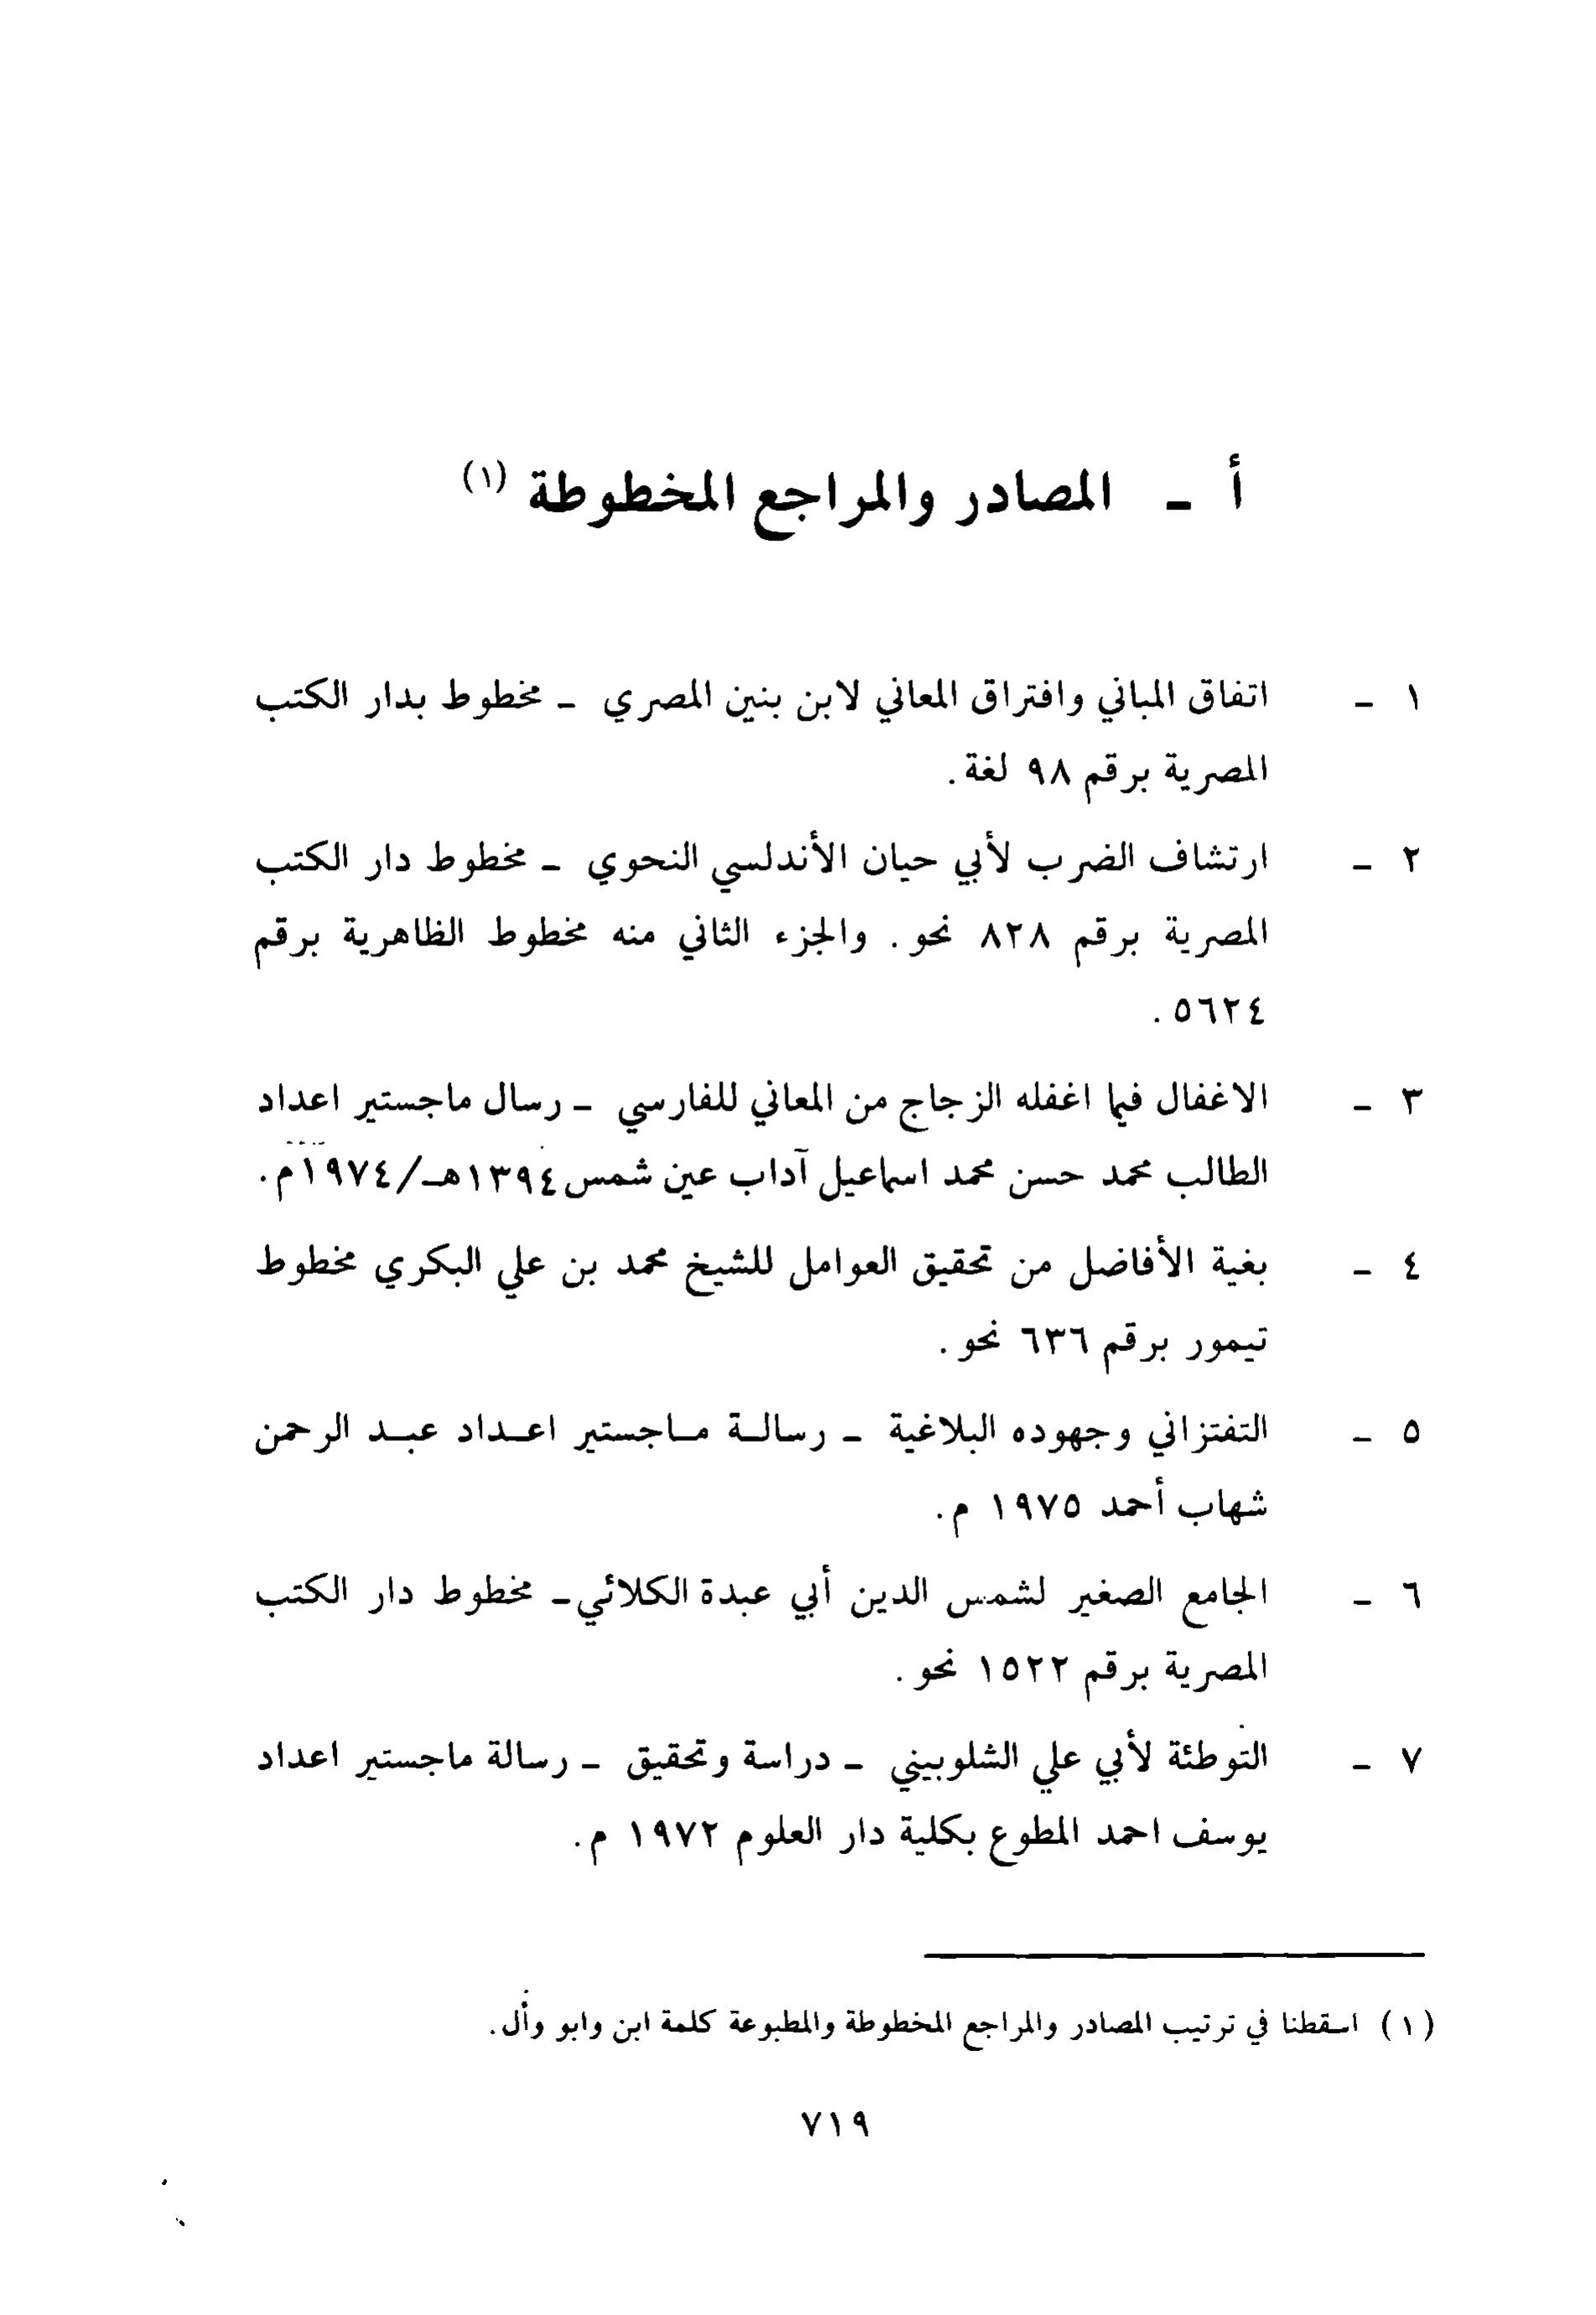 أ - المصادر والمراجع المخطوطة (١)
١ - اتفاق المباني وافتراق المعاني لابن بنين المصري - مخطوط بدار الكتب
المصرية برقم ٩٨ لغة.
٢ - ارتشاف الضرب لأبي حيان الأندلسي النحوي - مخطوط دار الكتب
المصرية برقم ٨٢٨ نحو. والجزء الثاني منه مخطوط الظاهرية برقم
٥٦٢٤.
٣ - الاغفال فيما اغفله الزجاج من المعاني للفارسي - رسال ماجستير اعداد
الطالب محمد حسن محمد اسماعيل آداب عين شمس ١٣٩٤هـ/١٩٧٤م.
٤ - بغية الأفاضل من تحقيق العوامل للشيخ محمد بن علي البكري مخطوط
تيمور برقم ٦٣٦ نحو.
٥ - التفتزاني وجهوده البلاغية - رسالة ماجستير اعداد عبد الرحمن
شهاب أحمد ١٩٧٥ م.
٦ - الجامع الصغير لشمس الدين أبي عبدة الكلائي - مخطوط دار الكتب
المصرية برقم ١٥٢٢ نحو.
٧ - التوطئة لأبي علي الشلوبيني - دراسة وتحقيق - رسالة ماجستير اعداد
يوسف احمد المطوع بكلية دار العلوم ١٩٧٢ م.
(١) اسقطنا في ترتيب المصادر والمراجع المخطوطة والمطبوعة كلمة ابن وابو وأل.
٧١٩